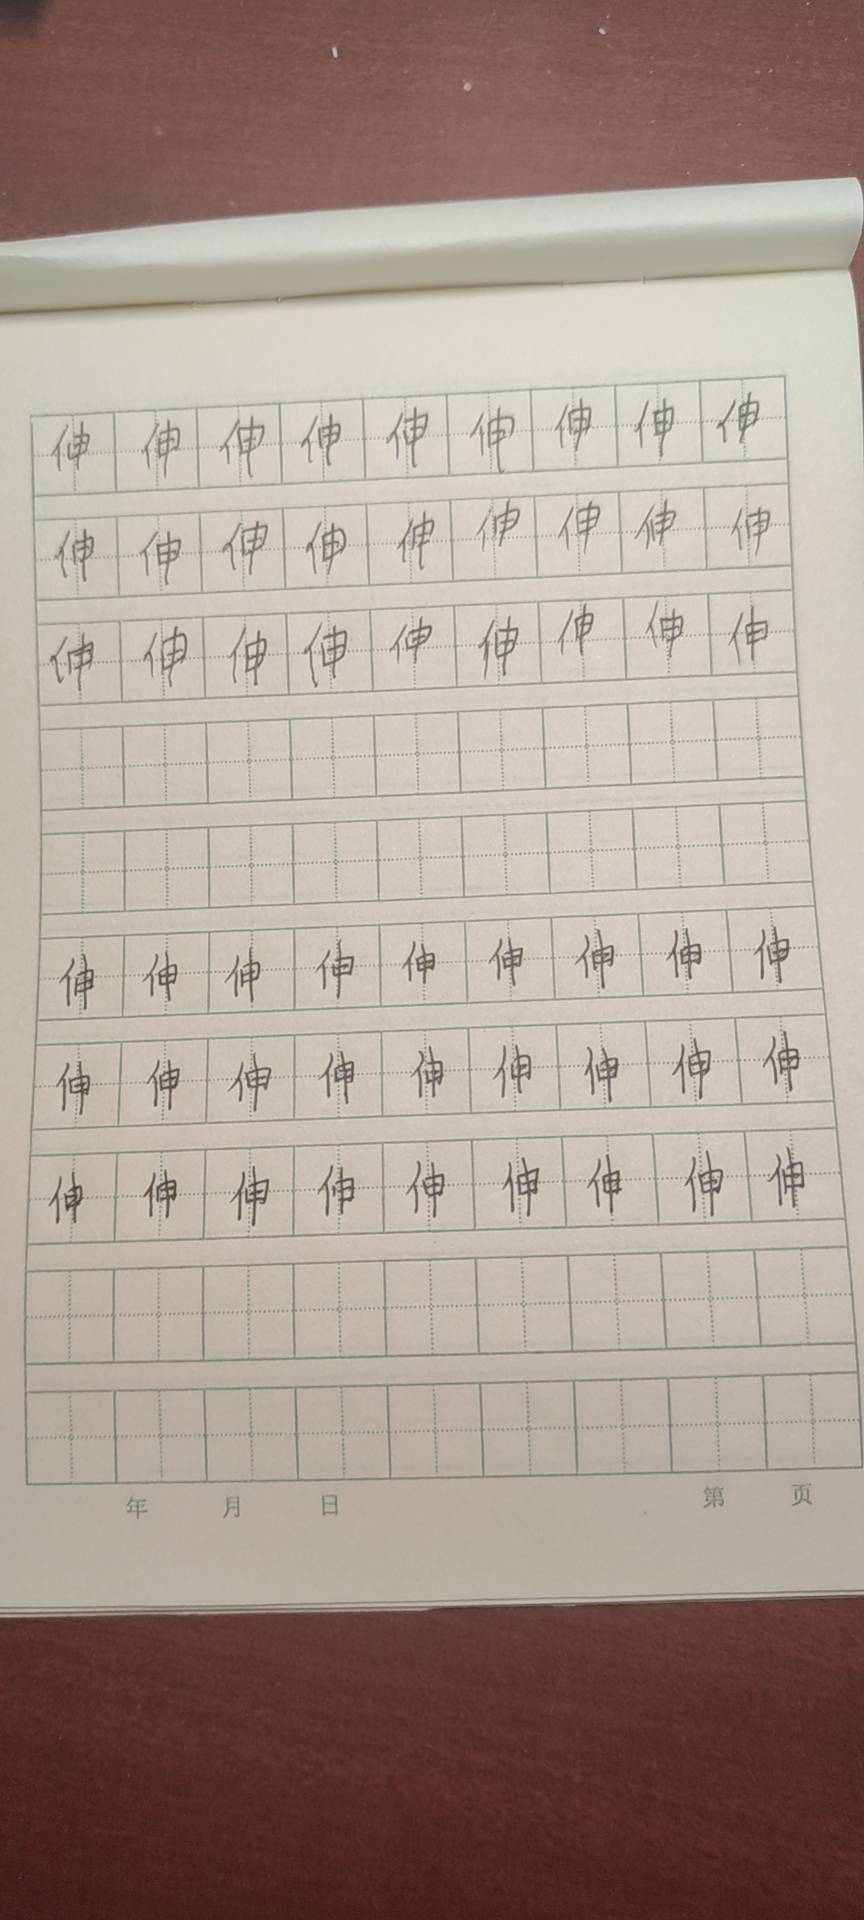 伸伸伸伸伸伸伸伸伸
伸伸伸伸伸伸伸伸伸
伸伸伸伸伸伸伸伸伸
伸伸伸伸伸伸伸伸伸
伸伸伸伸伸伸伸伸伸
伸伸伸伸伸伸伸伸伸
年 月 日 第 页